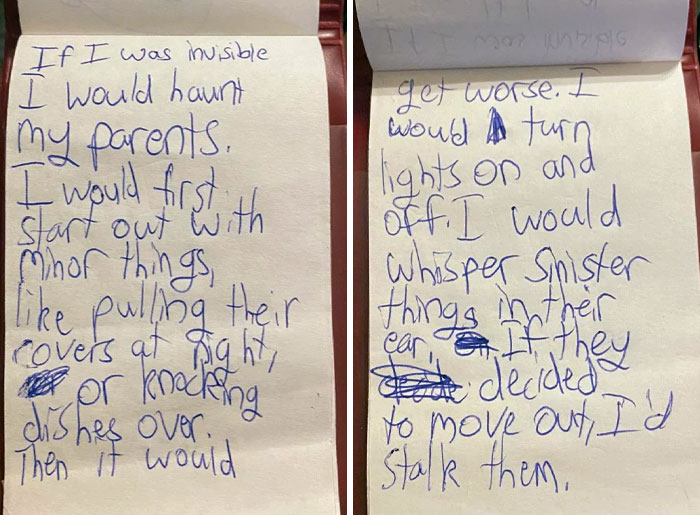 If I was invisible
I would haunt
my parents.
I would first
start out with
minor things,
like pulling their
covers at night,
or knocking
dishes over.
Then it would
get worse. I
would turn
lights on and
off. I would
whisper sinister
things in their
ear. If they
decided
to move out, I'd
stalk them.